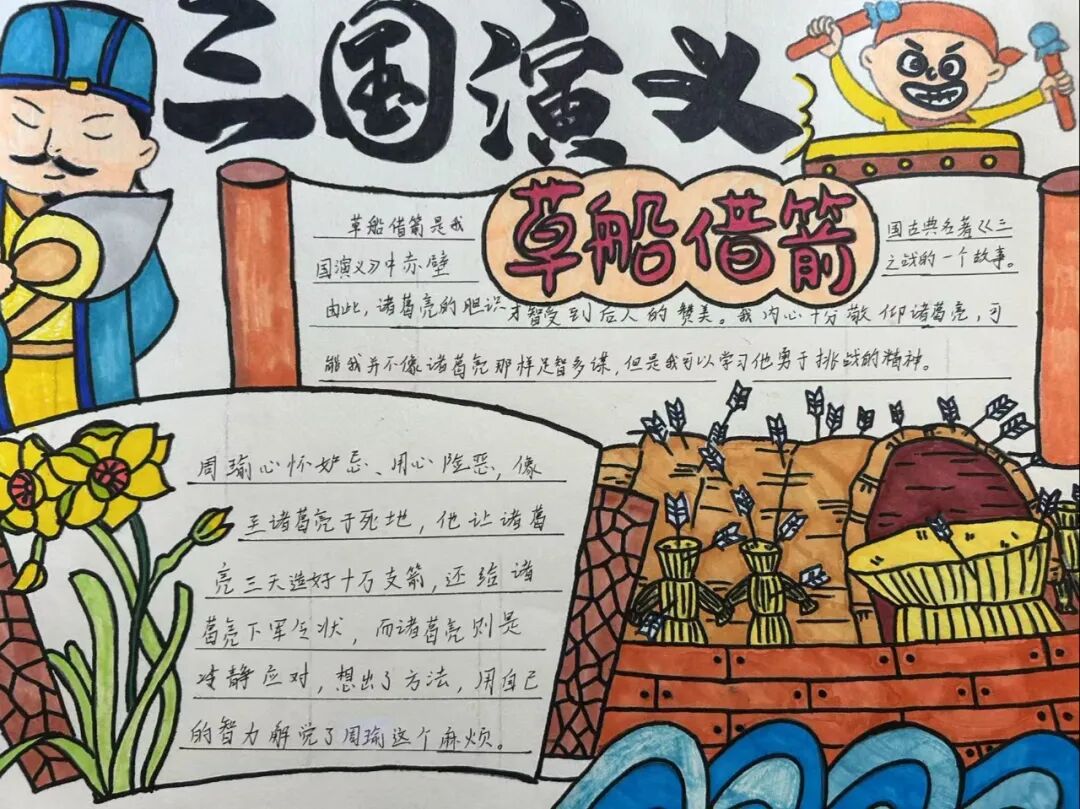 三国演义
草船借箭
草船借箭是我国古典名著《三
国演义》中赤壁之战的一个故事。
由此，诸葛亮的胆识才智受到后人的赞美。我内心十分敬仰诸葛亮，可
能我并不像诸葛亮那样足智多谋，但是我可以学习他勇于挑战的精神。
周瑜心怀妒忌、用心险恶，像
至诸葛亮于死地，他让诸葛
亮三天造好十万支箭，还给诸
葛亮下军令状，而诸葛亮则是
冷静应对，想出了方法，用自己
的智力解觉了周瑜这个麻烦。